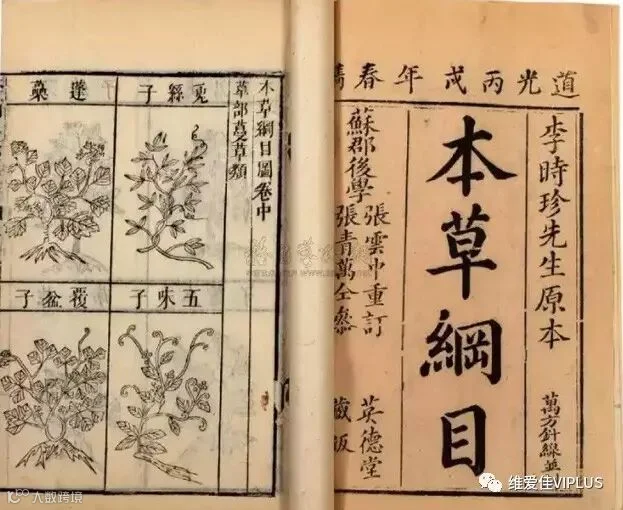 道光丙戌年春鐫
李時珍先生原本
萬方針線並
本草綱目
蘇郡後學
張雲中重訂
張青萬仝參
英德堂
藏版
本草綱目圖卷中
草部蔓草類
子絲兎
蘽蓬
子味五
子盆覆
维爱佳VIPLUS
大数跨境